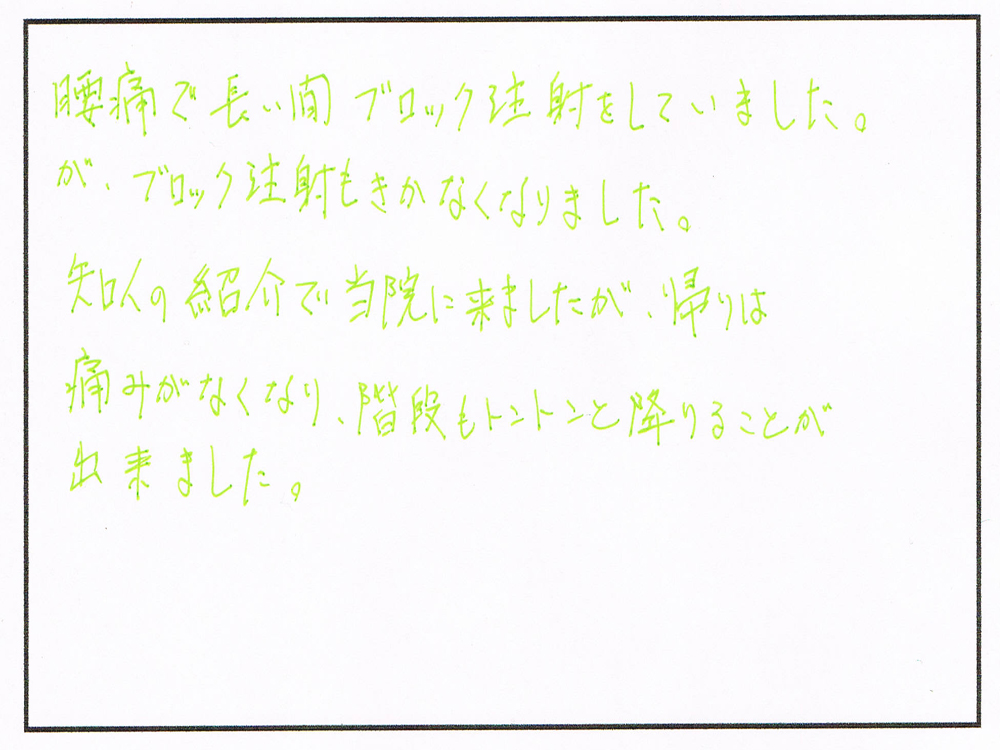 腰痛で長い間ブロック注射をしていました。
が、ブロック注射もきかなくなりました。
知人の紹介で当院に来ましたが、帰りは
痛みがなくなり、階段もトントンと降りることが
出来ました。